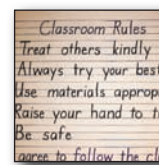 Classroom Rules
Treat others kindly
Always try your best
Use materials
Raise your hand to
Be safe
agree to follow the